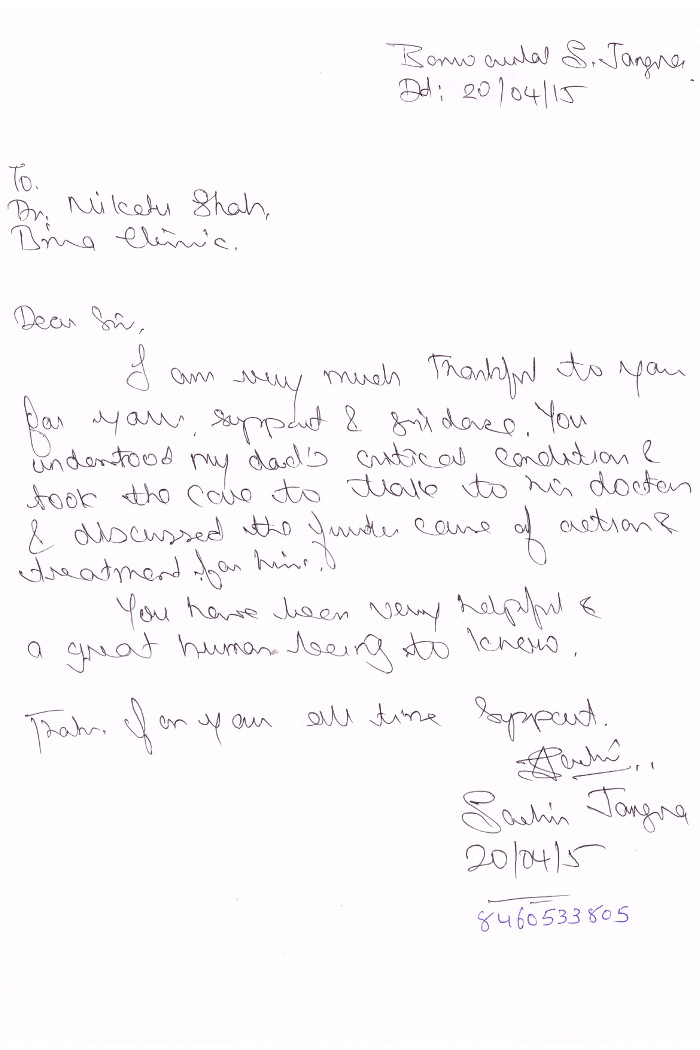 S. Jangra.
Dd: 20/04/15
To.
Dr. Niketu Shah,
Bina Clinic.
Dear Sir,
I am very much Thankful to you
for your support & guidance. You
understood my dad's critical condition &
took the care to talk to his doctors
& discussed the further course of action &
treatment for him.
You have been very helpful &
a great human being to know.
for your all time support.
Sachin Jangra
20/04/15
8460533805